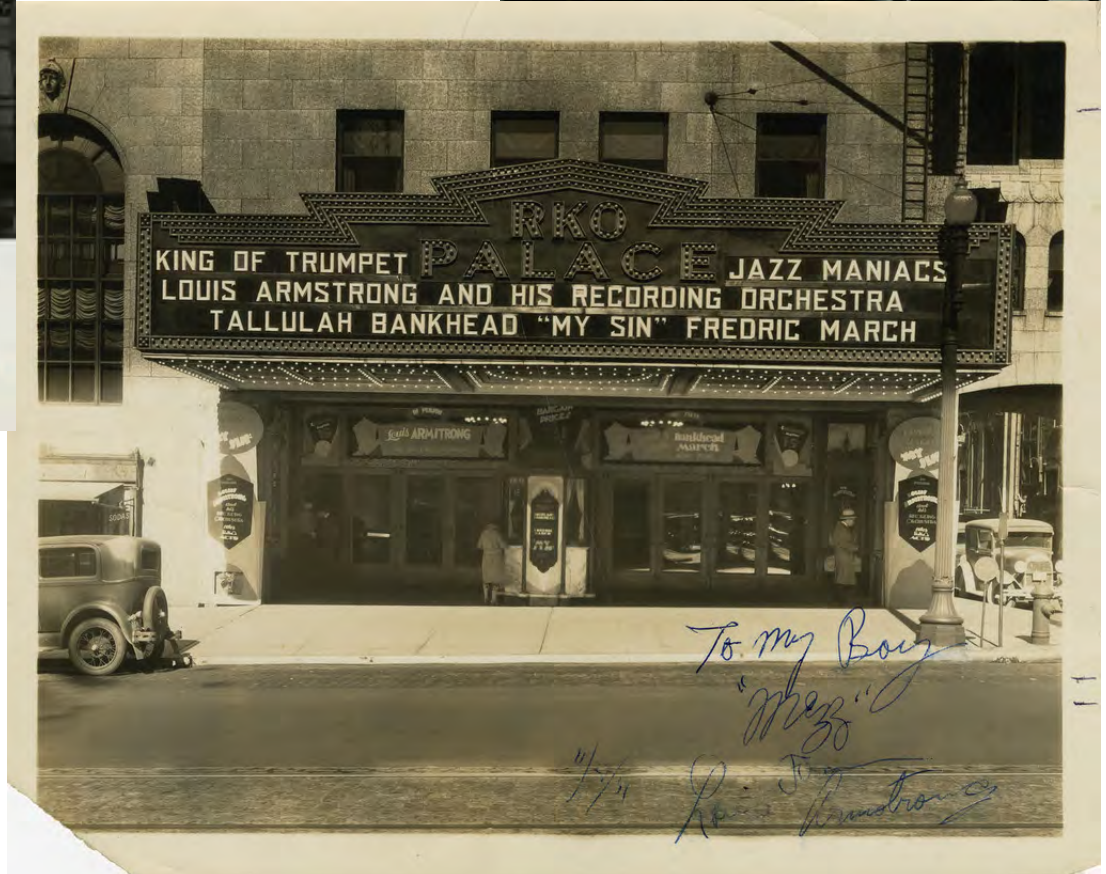 RKO
PALACE
KING OF TRUMPET JAZZ MANIACS
LOUIS ARMSTRONG AND HIS RECORDING ORCHESTRA
TALLULAH BANKHEAD "MY SIN" FREDRIC MARCH
IN PERSON
Louis ARMSTRONG
BARGAIN
PRICES
Bankhead
March
SODAS
To My Boy
"Mezz"
From
Louis Armstrong